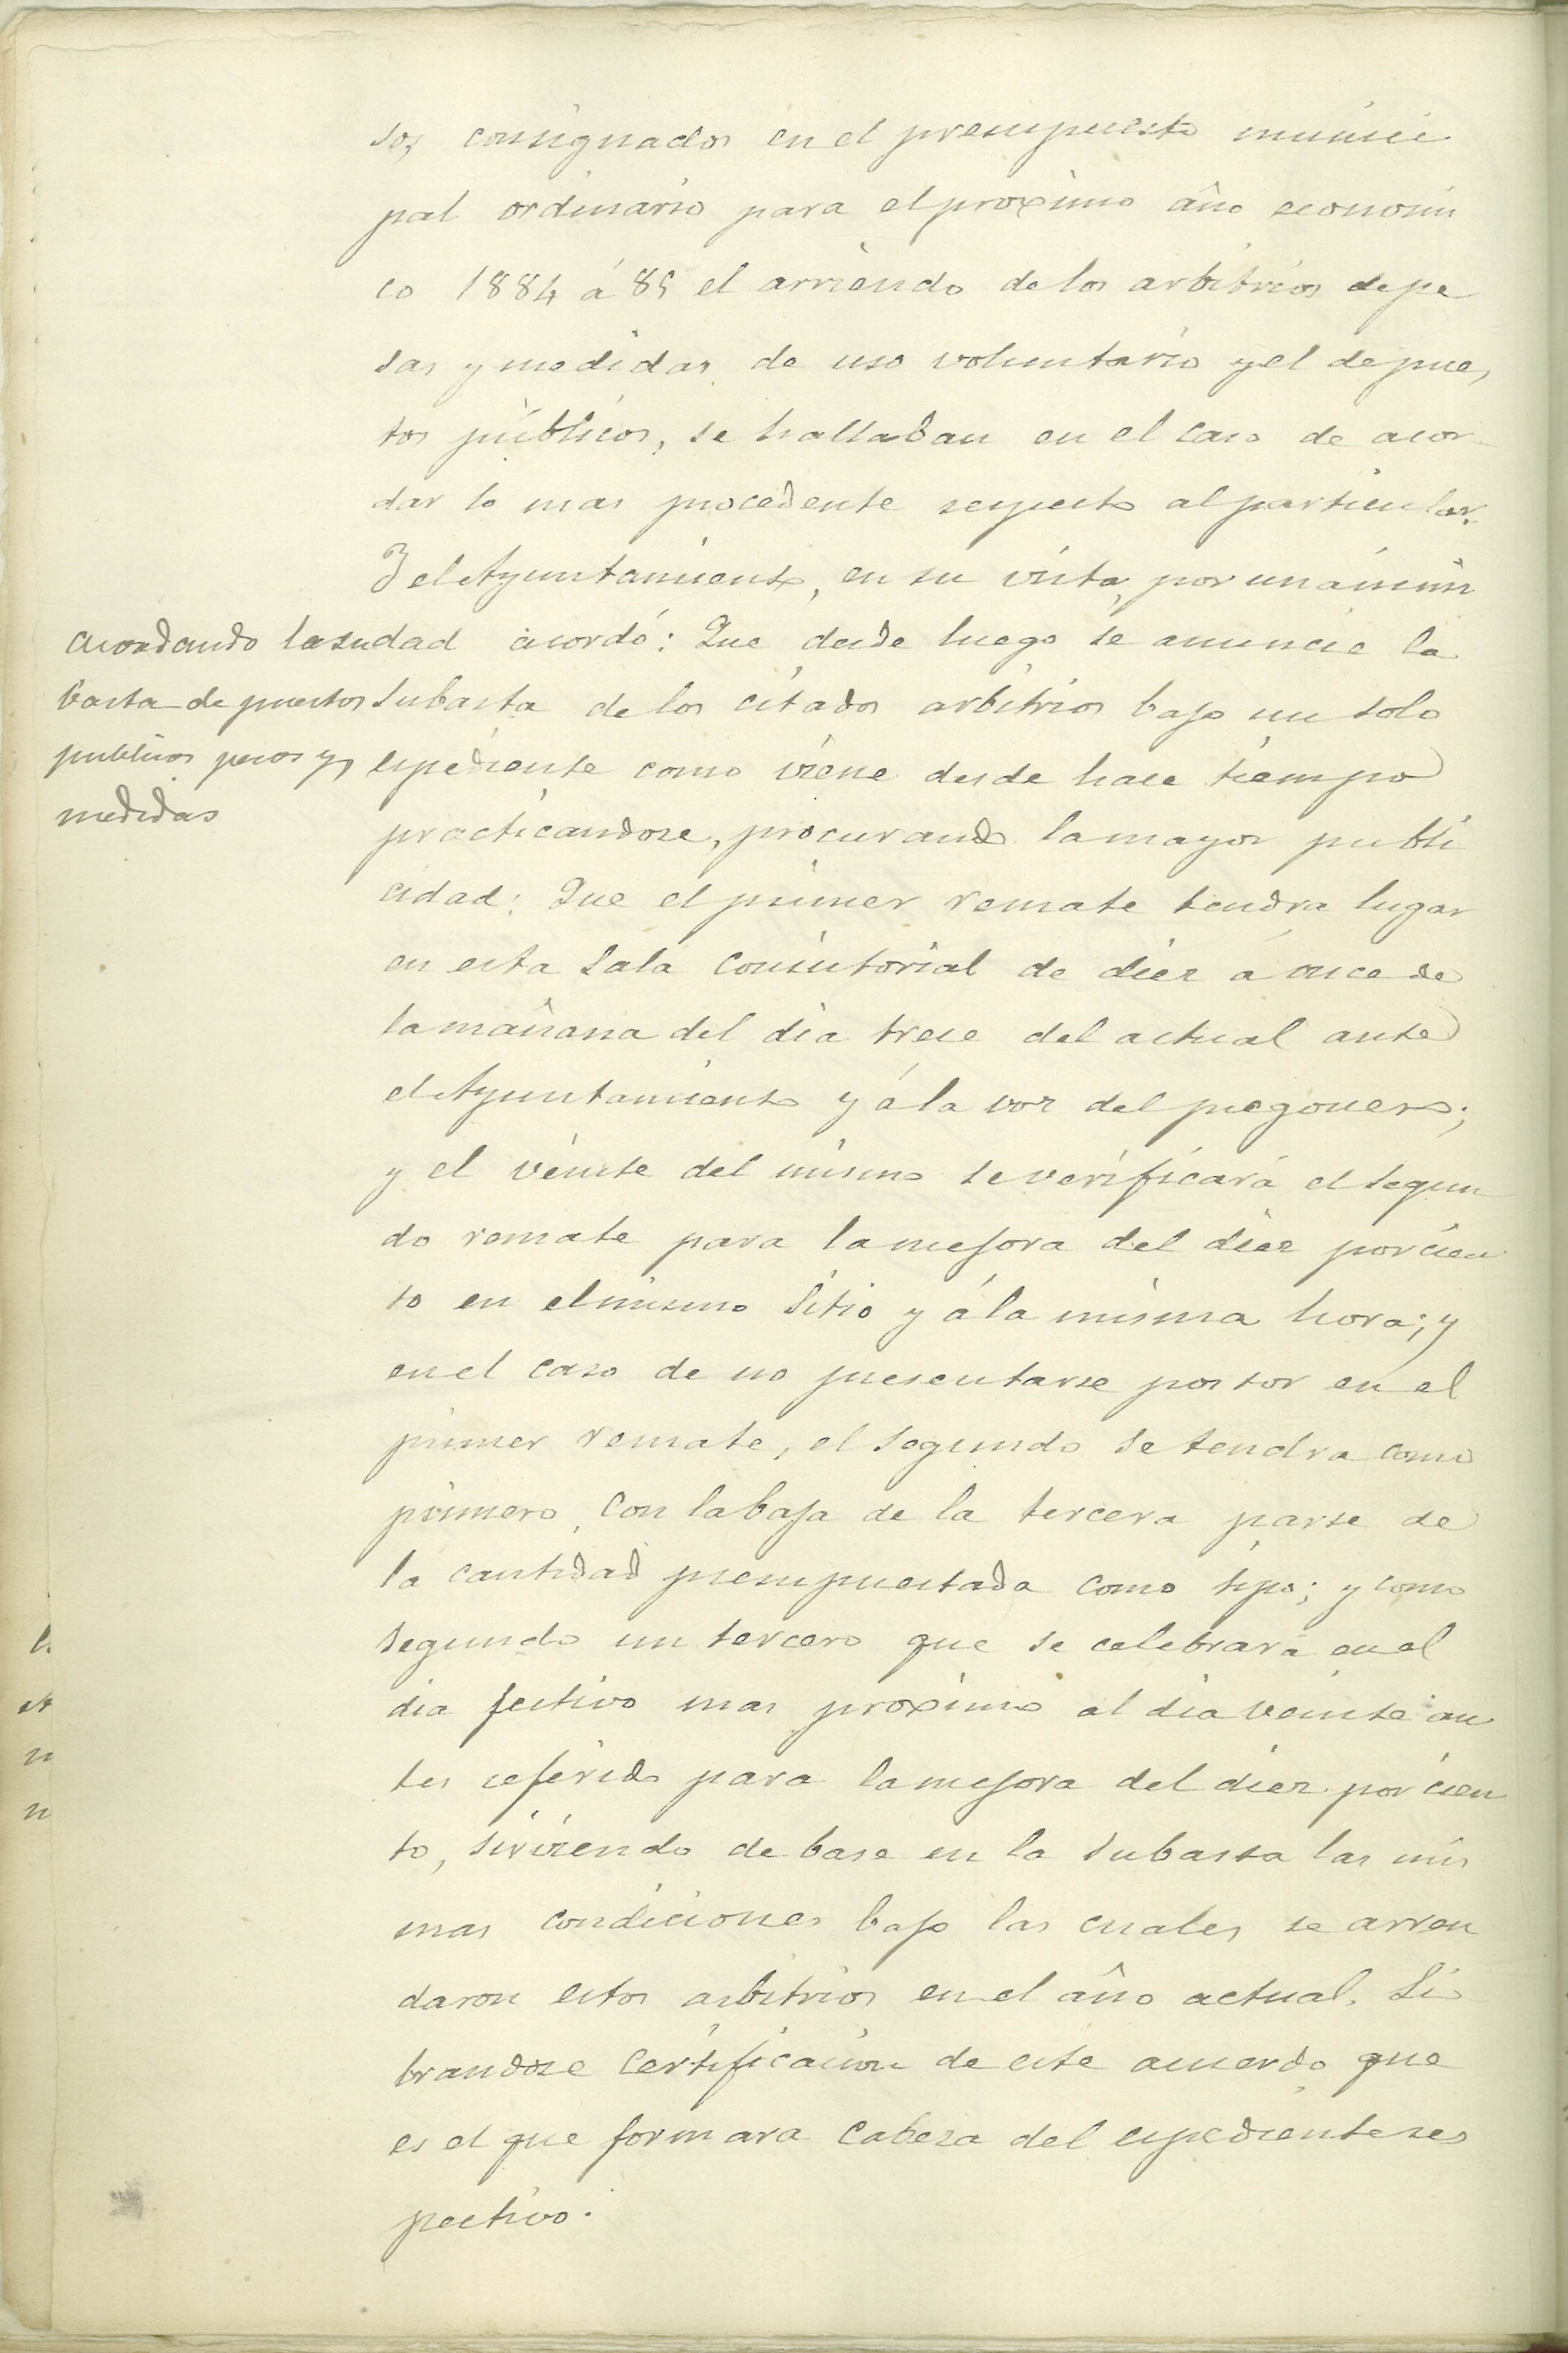 sos consignados en el presupuesto munici
pal ordinario para el proximo año economi
co 1884 á 85 el arriendo de los arbitrios de pe
sas y medidas de uso voluntario y el de pues
tos públicos, se hallaban en el caso de acor
dar lo mas procedente respecto al particular.
Y el Ayuntamiento, en su vista, por unánimi
dad acordó: Que desde luego se anuncie la
subasta de los citados arbitrios bajo un solo
espediente como viene desde hace tiempo
practicandose, procurando la mayor publi
cidad: Que el primer remate tendra lugar
en esta Sala Consistorial de diez á once de
la mañana del dia trece del actual ante
el Ayuntamiento y á la voz del pregonero;
y el veinte del mismo se verificará el segun
do remate para la mejora del diez por cien
to en el mismo sitio y á la misma hora; y
en el caso de no presentarse postor en el
primer remate, el segundo se tendra como
primero, con la baja de la tercera parte de
la cantidad presupuestada como tipo; y como
segundo un tercero que se celebrará en el
dia festivo mas proximo al dia veinte an
tes referido para la mejora del diez por cien
to, sirviendo de base en la subasta las mis
mas condiciones bajo las cuales se arren
daron estos arbitrios en el año actual. Li
brandose certificacion de este acuerdo que
es el que formara cabeza del espediente res
pectivo.
Acordando la su
basta de puestos
publicos pesos y
medidas